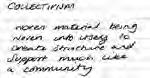 COLLECTIVISM
woven material being
woven into itself to
create structure and
support much like
a community